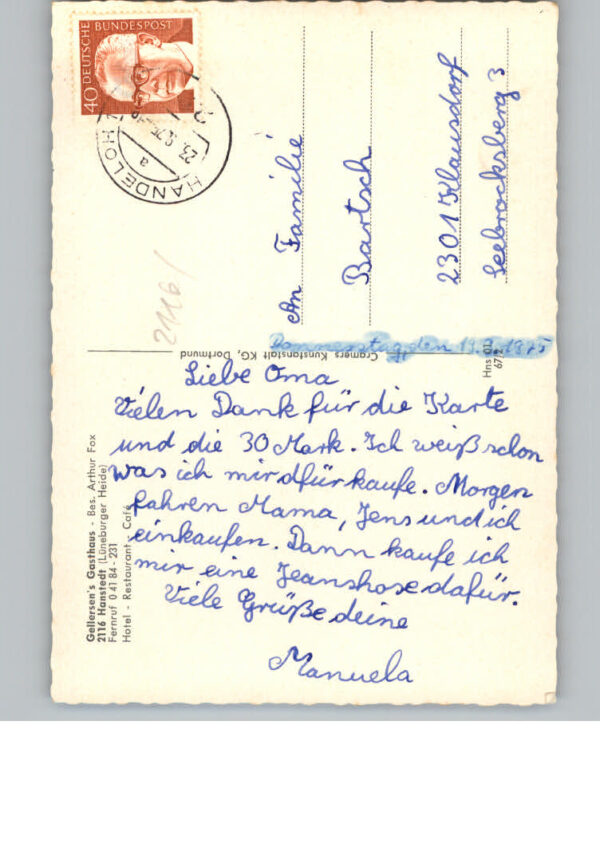 DEUTSCHE BUNDESPOST
40
HANDELOH
a
23.
2116/
An Familie
Bartsch
2301 Klausdorf
Seebrocksberg 3
Donnerstag, den 19. 1975
Cramers Kunstanstalt KG, Dortmund
Hns
Liebe Oma
Vielen Dank für die Karte
und die 30 Mark. Ich weiß schon
was ich mir dfür kaufe. Morgen
fahren Mama, Jens und ich
einkaufen. Dann kaufe ich
mir eine Jeanshose dafür.
Viele Grüße deine
Manuela
Gellersen's Gasthaus - Bes. Arthur Fox
2116 Hanstedt (Lüneburger Heide)
Fernruf 0 41 84 - 231
Hotel - Restaurant - Café